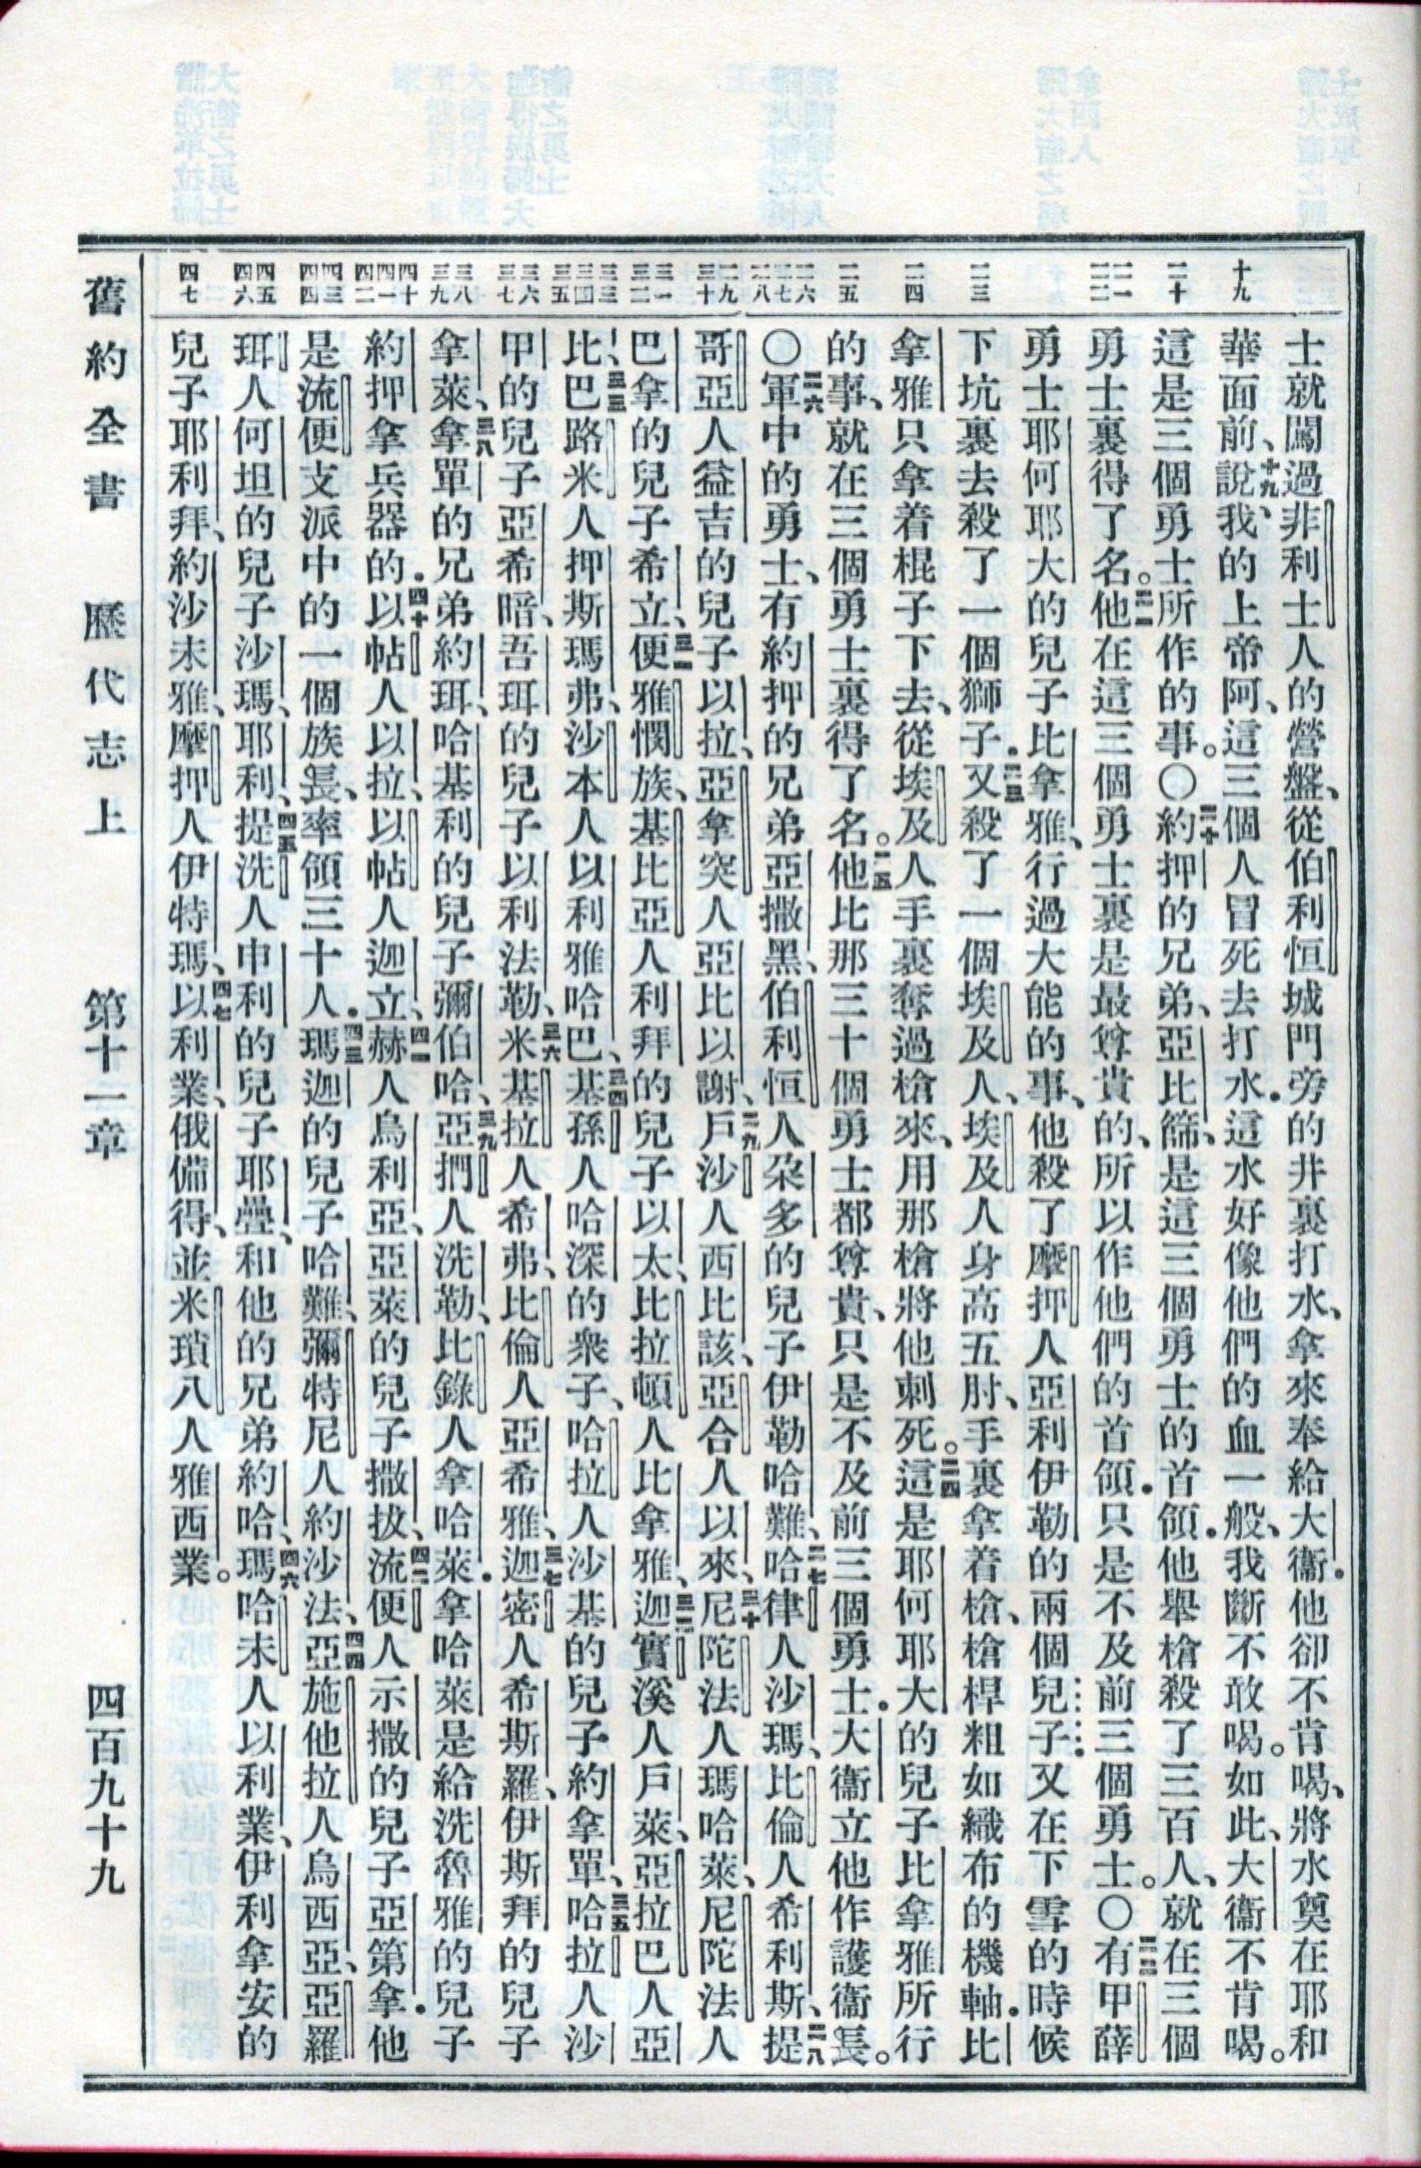 士就闖過非利士人的營盤、從伯利恒城門旁的井裏打水、拿來奉給大衞．他卻不肯喝、將水奠在耶和
十九
華面前、十九說、我的上帝阿、這三個人冒死去打水．這水好像他們的血一般、我斷不敢喝。如此、大衞不肯喝。
二十
這是三個勇士所作的事。〇二十約押的兄弟、亞比篩、是這三個勇士的首領．他舉槍殺了三百人、就在三個
二一 二二
勇士裏得了名。二一他在這三個勇士裏是最尊貴的、所以作他們的首領．只是不及前三個勇士。〇二二有甲薛
勇士耶何耶大的兒子比拿雅、行過大能的事、他殺了摩押人亞利伊勒的兩個兒子．又在下雪的時候
二三
下坑裏去殺了一個獅子．二三又殺了一個埃及人、埃及人身高五肘、手裏拿着槍、槍桿粗如織布的機軸．比
二四
拿雅只拿着棍子下去、從埃及人手裏奪過槍來、用那槍將他刺死。二四這是耶何耶大的兒子比拿雅所行
二五
的事、就在三個勇士裏得了名。二五他比那三十個勇士都尊貴、只是不及前三個勇士．大衞立他作護衞長。
二六 二七 二八
〇二六軍中的勇士、有約押的兄弟亞撒黑、伯利恒人朵多的兒子伊勒哈難、二七哈律人沙瑪、比倫人希利斯、二八提
二九 三十
哥亞人益吉的兒子以拉、亞拿突人亞比以謝、二九戶沙人西比該、亞合人以來、三十尼陀法人瑪哈萊、尼陀法人
三一 三二
巴拿的兒子希立、三一便雅憫族、基比亞人利拜的兒子以太、比拉頓人比拿雅、三二迦實溪人戶萊、亞拉巴人亞
三三 三四 三五
比、三三巴路米人押斯瑪弗、沙本人以利雅哈巴、三四基孫人哈深的衆子、哈拉人沙基的兒子約拿單、三五哈拉人沙
三六 三七
甲的兒子亞希暗、吾珥的兒子以利法勒、三六米基拉人希弗、比倫人亞希雅、三七迦密人希斯羅、伊斯拜的兒子
三八 三九
拿萊、三八拿單的兄弟約珥、哈基利的兒子彌伯哈、三九亞捫人洗勒、比錄人拿哈萊．拿哈萊是給洗魯雅的兒子
四十 四一 四二
約押拿兵器的．四十以帖人以拉、以帖人迦立、四一赫人烏利亞、亞萊的兒子撒拔、四二流便人示撒的兒子亞第拿．他
四三 四四
是流便支派中的一個族長、率領三十人．四三瑪迦的兒子哈難、彌特尼人約沙法、四四亞施他拉人烏西亞、亞羅
四五 四六
珥人何坦的兒子沙瑪、耶利、四五提洗人申利的兒子耶疊、和他的兄弟約哈、四六瑪哈未人以利業、伊利拿安的
四七
兒子耶利拜、約沙未雅、摩押人伊特瑪、四七以利業、俄備得、並米瑣八人雅西業。
舊約全書 歷代志上 第十一章 四百九十九